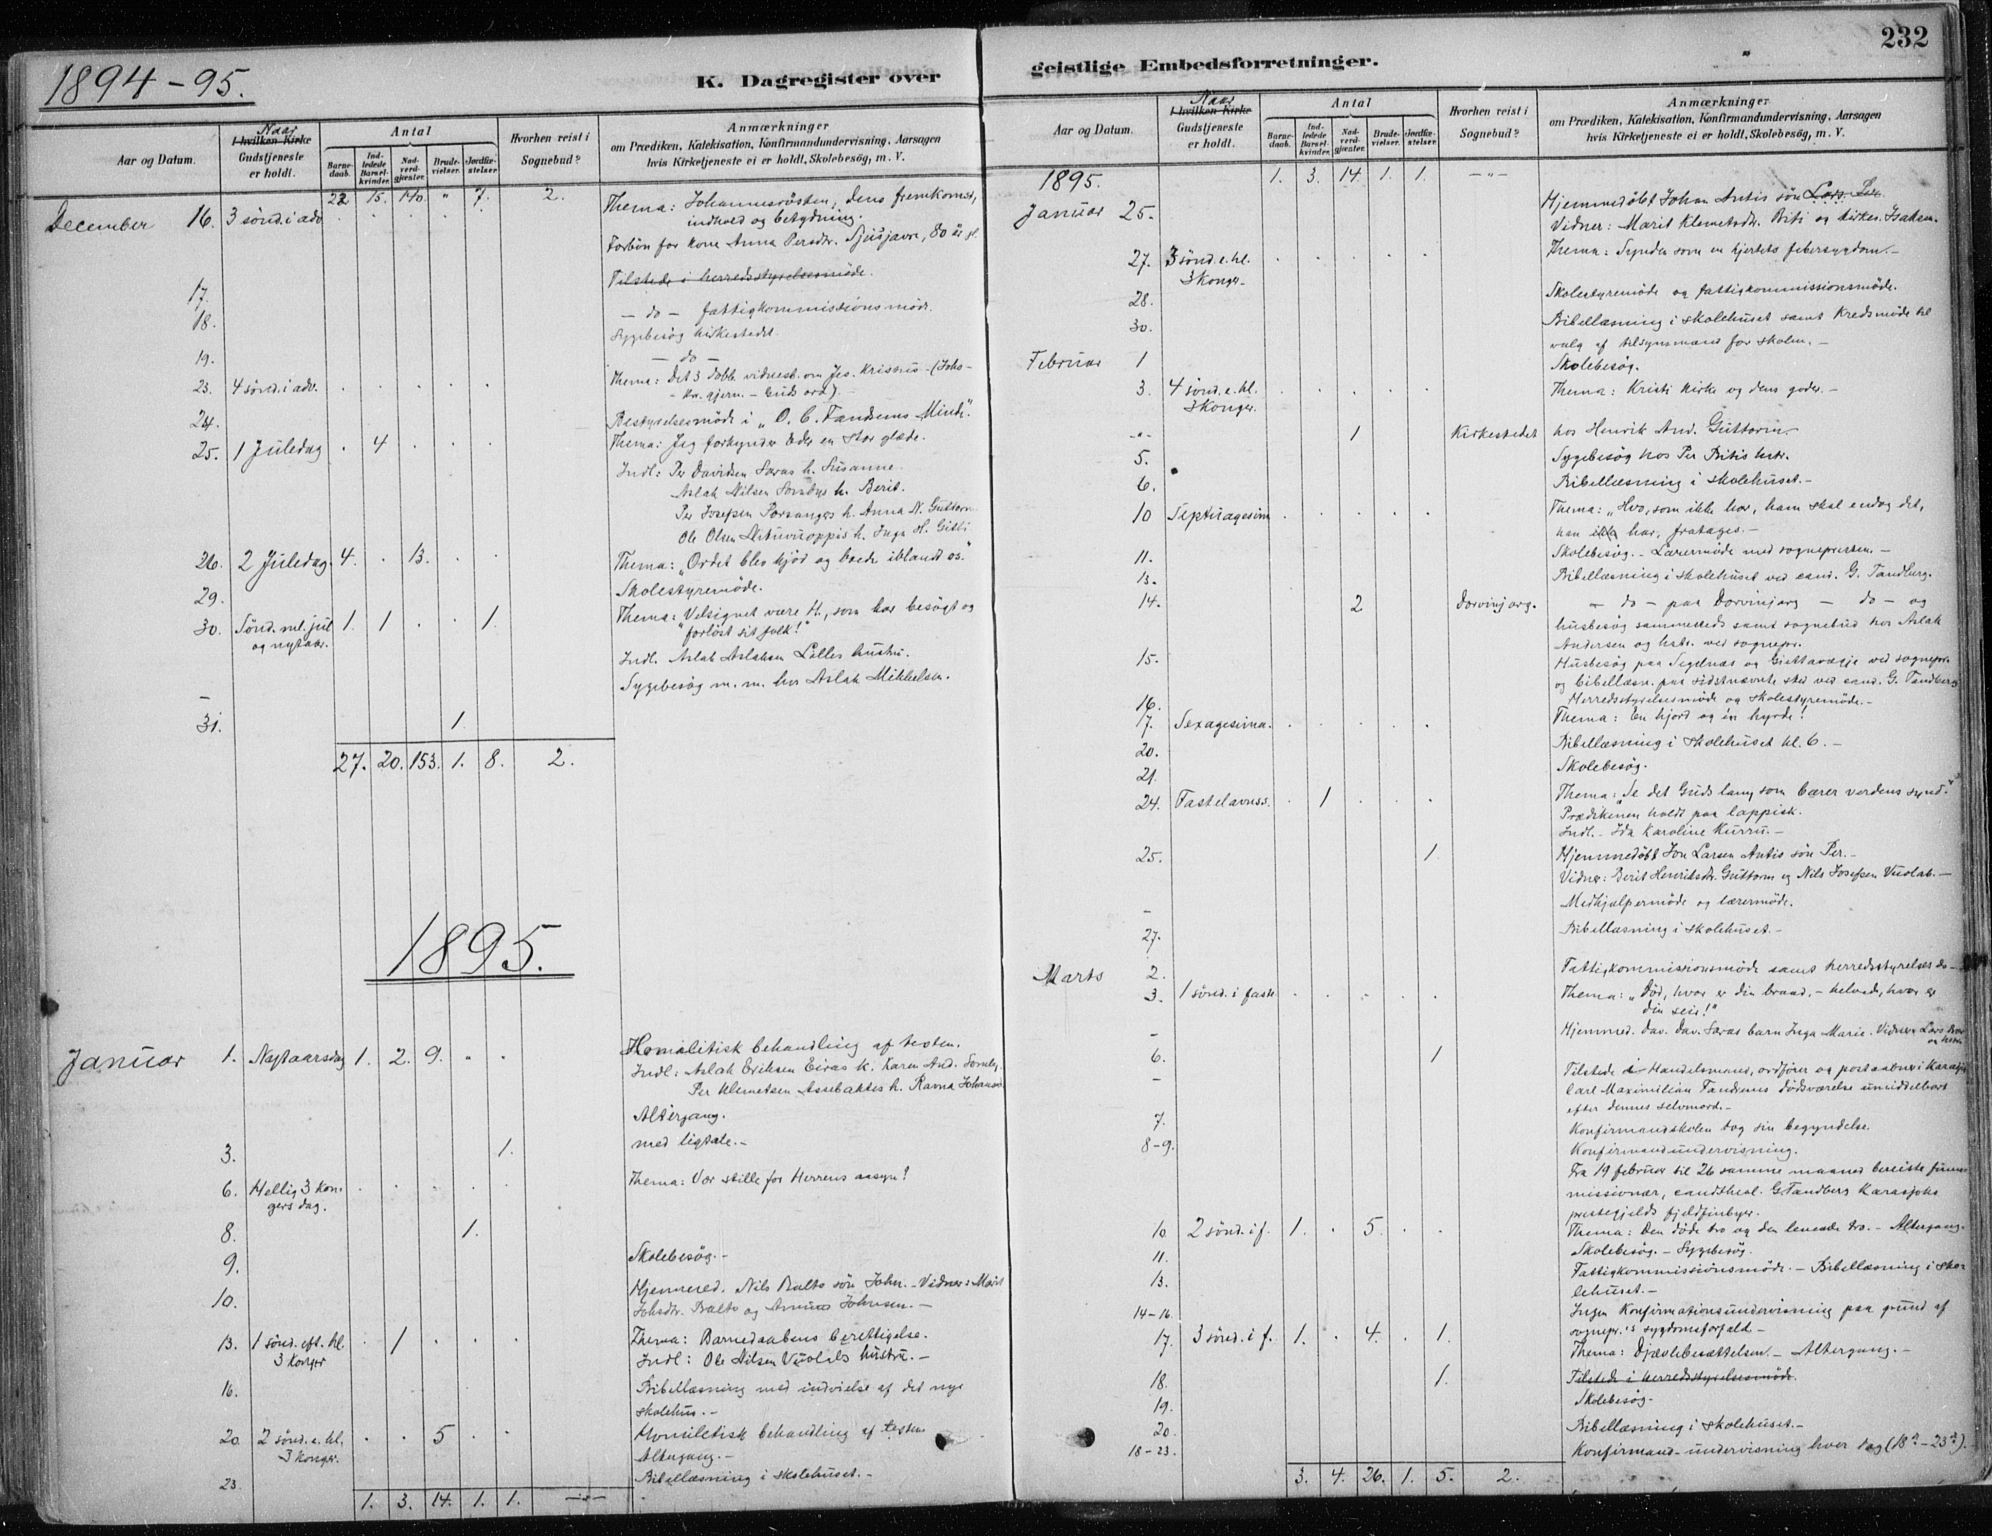 1894-95.
K. Dagregister over
Aar og Datum.
Naar
I hvilken Kirke
Gudstjeneste
er holdt.
Antal
Barne-
daab.
Ind-
ledede
Barsel-
kvinder.
Nad-
verd-
gjæster.
Brude-
vielser.
Jordfæ-
stelser.
Hvorhen reist i
Sognebud?
Anmærkninger
om Prædiken, Katekisation, Konfirmandundervisning, Aarsagen
hvis Kirketjeneste ei er holdt, Skolebesøg, m. V.
22 15. 140. " 7. 2.
December 16. 3 sönd. i adv. Thema: Johannesrösten, dens fremkomst,
indhold og betydning.
Forbön for kone Anna Persdtr. 80 år gl.
17. Tilstede i herredsstyrelsesmöde.
18. - do - fattigkommissionsmöde.
Sygebesög Kirkestedet.
19. - do -
23. 4 sönd. i adv. Thema: Det 3 dobb. vidnesb. om Jes. Kristus - (Johs -
- Kr. gjern. - Guds ord).
24. Bestyrelsesmöde i „O. C. Fandrems Minde".
25. 1 Juledag . 4 Thema: Jeg forkynder Eder en stor glæde.
Indl: Per Davidsen Saras h. Susanne.
Aslak Nilsen h. Berit.
Per Josefsen Porsangers h. Anna N. Guttorm
Ole Olsen h. Inga H.
26. 2 Juledag. 4. . 13. Thema: „Ordet blev kjöd og boede iblandt os."
29. Skolestyremöde.
30. Sönd. ml. jul 1. 1 . . 1. Thema: "Velsignet være H., som har besögt og
og nytaar. forlöst sit folk!"
Indl. Aslak Aslaksen Lilles hustru.
- Sygebesög m. m. hos Aslak Mikkelsen.
31. 1.
27. 20. 153. 1. 8. 2.
1895.
Januar 1. Nytaarsdag 1. 2. 9. " . Homilitisk behandling af texten.
Indl: Aslak Eriksen Eiras h. Karen And. Somby
Per Klemetsen Assebaktes h. Ravna Johanns
Altergang.
3. 1. med ligtale.-
6. Hellig 3 kon-
gers dag. Thema: Vær stille for Herrens aasyn!
8. 1.
9. Skolebesög.-
10. Hjemmed. Nils Balto sön John. - Vidner: Marit
Johsdtr. Balto og Johnsen. -
13. 1 sönd. eft. hl. . 1 Thema: Barnedaabens berettigelse.
3 konger Indl: Ole Nilsen Vuolabs hustru. -
16. Bibellæsning med indvielse af det nye
skolehus. -
20. 2 sönd. e. hl. . . 5 Homiletisk behandling af texten
3 konger. Altergang.-
23. Bibellæsning i skolehuset.-
1. 3. 14. 1. 1. -"-
232
geistlige Embedsforretninger.
Aar og Datum.
Naar
I hvilken Kirke
Gudstjeneste
er holdt.
Antal
Barne-
daab.
Ind-
ledede
Barsel-
kvinder.
Nad-
verd-
gjæster.
Brude-
vielser.
Jordfæ-
stelser.
Hvorhen reist i
Sognebud?
Anmærkninger
om Prædiken, Katekisation, Konfirmandundervisning, Aarsagen
hvis Kirketjeneste ei er holdt, Skolebesøg, m. V.
1895. 1. 3. 14. 1. 1. -"-
Januar 25. Hjemmedöbt John Antis sön Lars. Per.
Vidner: Marit Klemetsdtr. Biti og kirkes. Isaksen.
27. 3 sönd. e. hl. Thema: Synden som en hjertets febersygdom.-
3 konger.
28. Skolestyremöde og fattigkommissionsmöde.
30. Bibellæsning i skolehuset samt Kredsmöde til
valg af tilsynsmand for skolen. -
Februar 1 Skolebesög.
3. 4 sönd. e. hl. Thema: Kristi kirke og dens goder. -
3 konger.
-"- 1 Kirkestedet hos Henrik And. Guttorm.
5. Sygebesög hos Per Bitis hstr.
6. Bibellæsning i skolehuset.-
10 Septuagesim Thema: „Hvo, som ikke har, ham skal endog det,
han har, fratages.-
11. Skolebesög. - Lærermöde med sognepresten. -
13. Bibellæsning i skolehuset ved cand. G. Tandberg.
14. 2 Dorvinjarg. - do - paa Dorvinjarg - do - og
husbesög sammesteds samt sognebud hos Aslak
Andersen og hstr. ved sognepr.
15. Husbesög paa Segelnæs og ved sognepr.
og bibellæsn. paa sidstnævnte sted ved cand. G. Tandberg
16. Herredsstyrelsesmöde og skolestyremöde.-
17. Sexagesima. Thema: En hjord og én hyrde!
20. Bibellæsning i skolehuset kl. 6. -
21. Skolebesög.
24. Fastelavnss. . 1 Thema: „Se det Guds lam, som bærer verdens synd."
Prædikenen holdt paa lappisk.
Indl. - Ida Karoline Kurru.-
25. 1 Hjemmedöbt Jon Larsen Antis sön Per.-
Vidner: Berit Henriksdtr. Guttorm og Nils Josefsen Vuolab.-
- Medhjælpermöde og lærermöde.
27. Bibellæsning i skolehuset.-
Marts 2. Fattigkommissionsmöde samt herredsstyrelses do -
3. 1 sönd. i faste Thema: „Död, hvor er din braad, - helvede, hvor er
din seir!"
- Hjemmed. Dav. Dav. Saras barn Inga Marie. Vidner: Lars
og hstr.
6. 1 Tilstede i Handelsmand, ordförer og postaabner i Karasjok
- Carl Maximilian Fandrems dödsværelse umiddelbart
efter dennes selvmord.-
7. Konfirmandskolen tog sin begyndelse.
8-9. Konfirmandundervisning.
Fra 19 februar til 26 samme maaned bereiste finne-
missionær, cand theol. G. Tandberg Karasjoks
prestegjelds fjeldfinbyer.
10 2 sönd. i f. 1. . 5. Thema: Den döde tro og den levende tro. - Altergang.
11. Skolebesög. - Sygebesög.
13. Fattigkommissionsmöde. - Bibellæsning i sko-
lehuset.-
14-16. Ingen Konfirmationsundervisning paa grund af
sognepr.'s sygdomsforfald.-
17. 3 sönd. i f. 1. . 4. . 1. Thema: Djævlebesættelsen. - Altergang. -
18. 1. Tilstede i herredsstyrelsesmöde.
19. Skolebesög.
20. Bibellæsning i skolehuset.-
18-23. Konfirmand-undervisning hver dag (18de-23de).
3. 4. 26. 1. 5. 2.